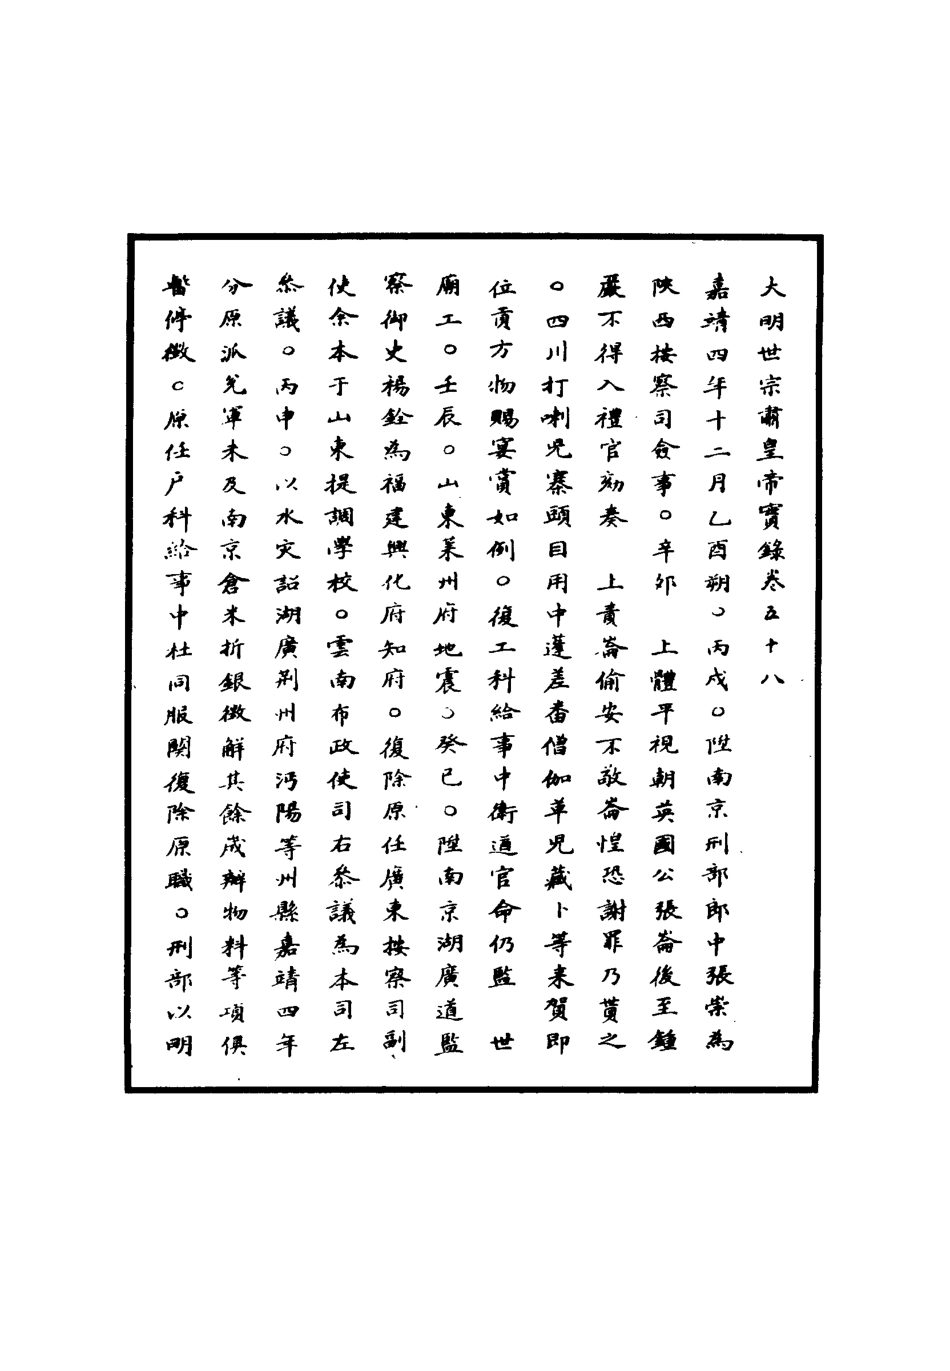 大明世宗肅皇帝寶錄卷五十八
嘉靖四年十二月乙酉朔○丙戌○陞南京刑部郎中張崇為
陝西按察司僉事○辛卯　上體平視朝英國公張崙後至鐘
嚴不得入禮官劾奏　上責崙偷安不敬崙惶恐謝罪乃貰之
○四川打喇児寨頭目用中蓬差畨僧伽革児藏卜等来賀即
位貢方物賜宴賞如例○復工科給事中衛道官命仍監　世
廟工○壬辰○山東萊州府地震○癸巳○陞南京湖廣道監
察御史楊銓為福建興化府知府○復除原任廣東按察司副
使余本于山東提調學校○雲南布政使司右叅議為本司左
叅議○丙申○以水灾詔湖廣荊州府沔陽等州縣嘉靖四年
分原派兌軍未及南京倉米折銀徵解其餘成辦物料等項俱
暫停徵○原任户科給事中杜同服闋復除原職○刑部以明